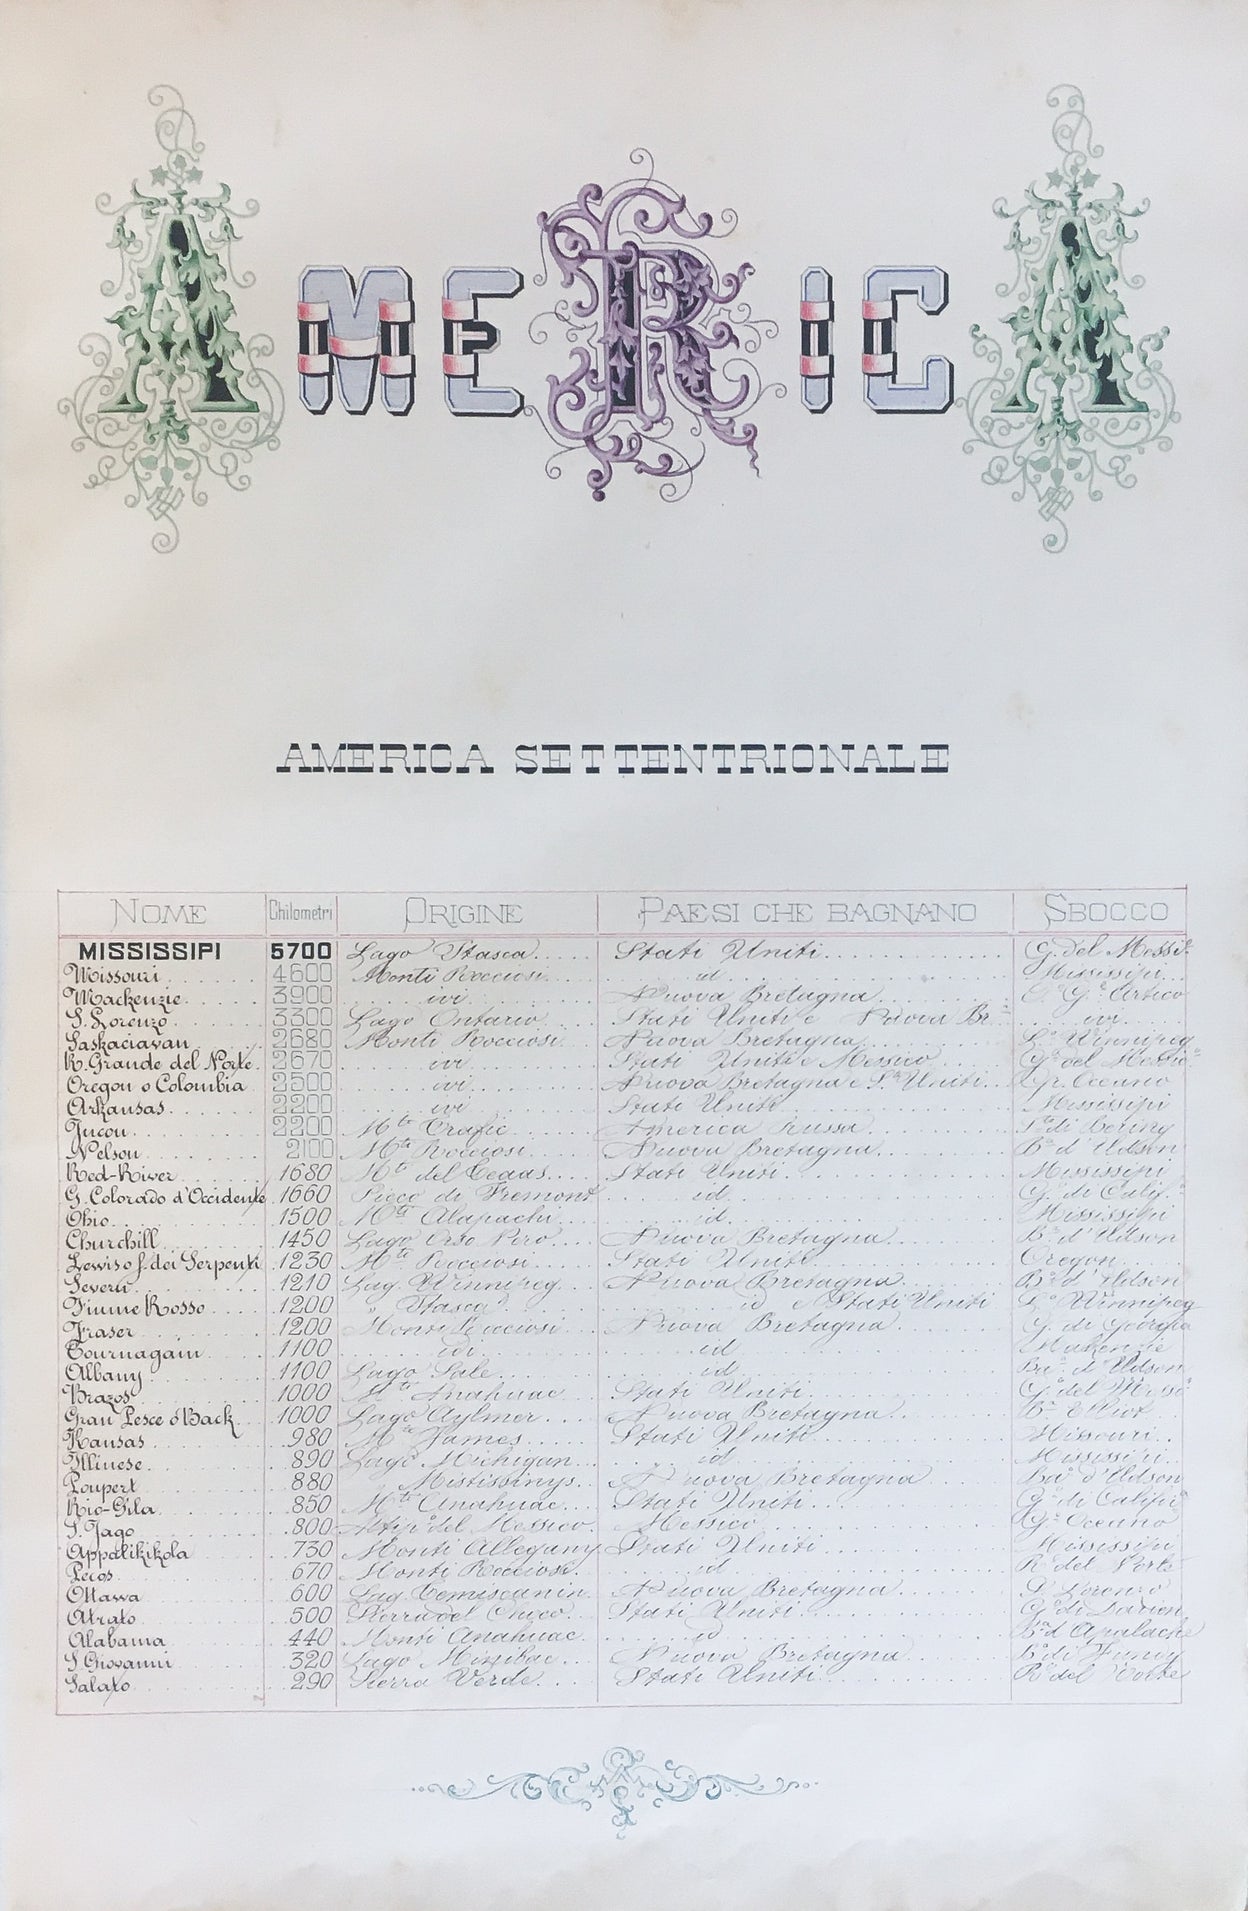 AMERICA
AMERICA SETTENTRIONALE
NOME Chilometri ORIGINE PAESI CHE BAGNANO SBOCCO
MISSISSIPI 5700 Lago Itasca Stati Uniti G. del Messi.º
Missouri 4600 Monti Rocciosi id Mississipi
Mackenzie 3900 ivi Nuova Bretagna Artico
S. Lorenzo 3300 Lago Ontario Stati Uniti e Nuova Br. ivi
Saskaciavan 2680 Monti Rocciosi Nuova Bretagna Lº Winnipeg
R. Grande del Norte 2670 ivi Stati Uniti e Messico Gº del Messicº
Oregon o Colombia 2500 ivi Nuova Bretagna e S.ti Uniti Gr. Oceano
Arkansas 2200 ivi Stati Uniti Mississipi
Jucon 2200 M.te America Russa di Bering
Nelson 2100 M.ti Rocciosi Nuova Bretagna Bª d'Udson
Red-River 1680 M.ti del Stati Uniti Mississipi
G. Colorado d'Occidente 1660 Picco di Fremont id Gº di Calif.ª
Ohio 1500 M.ti Alapachi id Mississipi
Churchill 1450 Lago Orso Nero Nuova Bretagna Bª d'Udson
Lewis o f. dei Serpenti 1230 M.ti Rocciosi Stati Uniti Oregon
Severn 1210 Lag. Winnipeg Nuova Bretagna Bª d'Udson
Fiume Rosso 1200 " Itasca id e Stati Uniti Lº Winnipeg
Fraser 1200 Monti Rocciosi Nuova Bretagna G. di Georgia
Tournagain 1100 ivi id Makenzie
Albany 1100 Lago Sale id Baª d'Udson
Brazos 1000 M.ti Anahuac Stati Uniti Gº del Messº
Gran Pesce o Back 1000 Lago Aylmer Nuova Bretagna Bª Elliot
Kansas 980 M.te James Stati Uniti Missouri
Illinese 890 Lago Michigan id Mississipi
Poupert 880 " Mistissinys Nuova Bretagna Baª d'Udson
Rio-Gila 850 M.ti Anahuac Stati Uniti Gº di Califª
S. Jago 800 Altipº del Messico Messico Gº Oceano
Appalikikola 730 Monti Allegany Stati Uniti Mississipi
Pecos 670 Monti Rocciosi id Rº del Norte
Ottawa 600 Lag. Temiscanin Nuova Bretagna S. Lorenzo
Atrato 500 Sierra del Choco Stati Uniti Gº di Darien
Alabama 440 Monti Anahuac id Bª d'Apalache
S. Giovanni 320 Lago Nuova Bretagna Bª di Funay
Salato 290 Sierra Verde Stati Uniti Rº del Norte